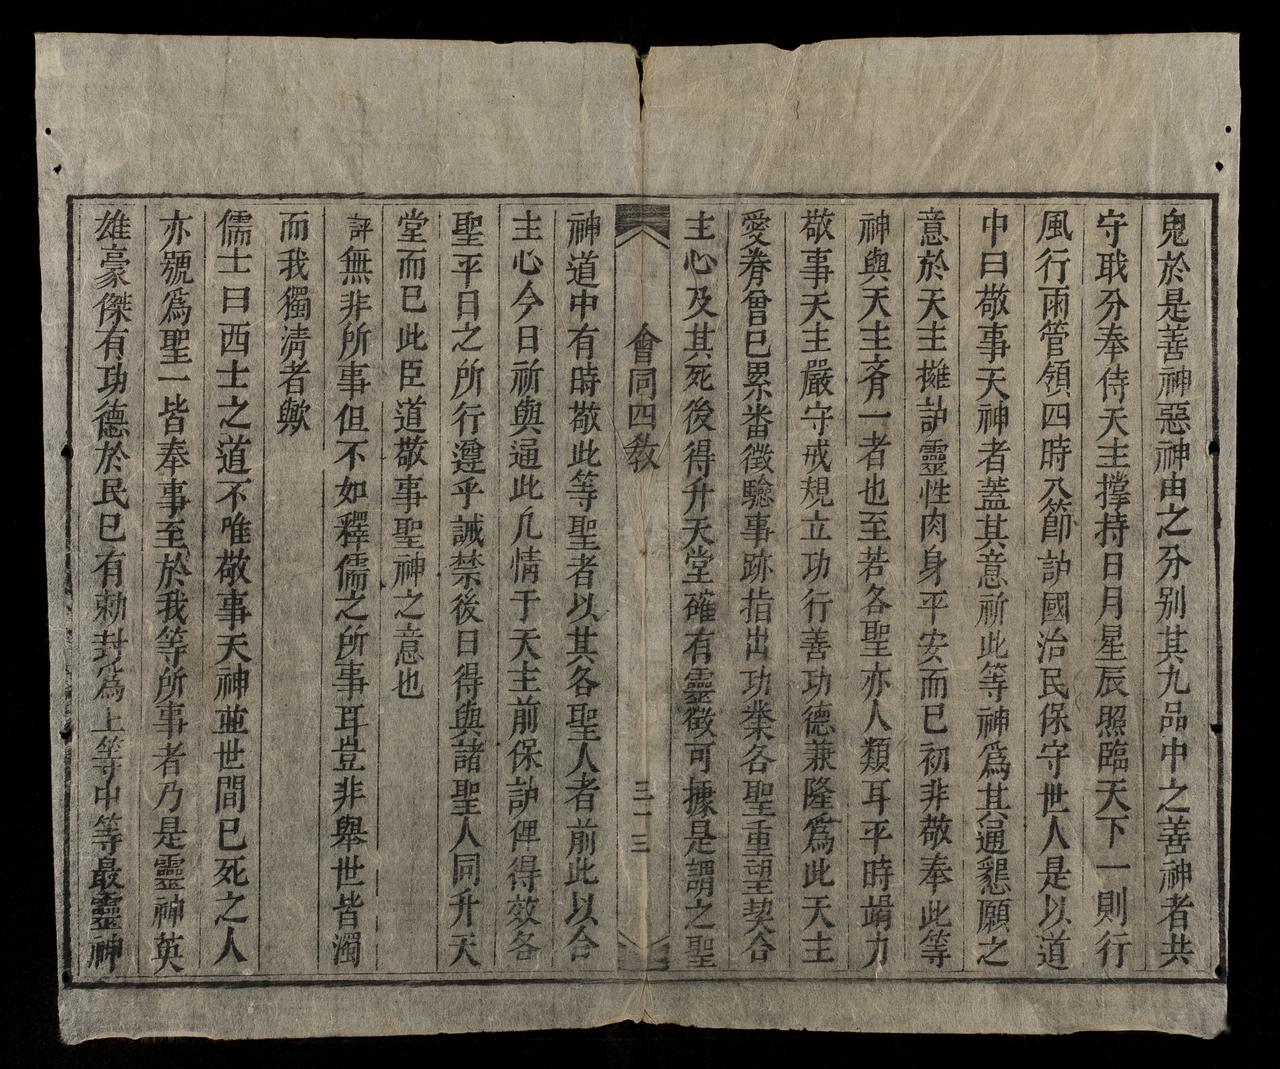 鬼於是善神惡神由之分别其九品中之善神者共
守耺分奉侍天主撑持日月星辰照臨天下一則行
風行雨管領四時八節訪國治民保守世人是以道
中曰敬事天神者蓋其意祈此等神爲其通懇願之
意於天主擁訪靈性肉身平安而已初非敬奉此等
神與天主斉一者也至若各聖亦人類耳平時竭力
敬事天主嚴守戒規立功行善功德兼隆爲此天主
愛眷曾已累畨徵驗事跡指出功業各聖重望契合
主心及其死後得升天堂確有靈徵可據是謂之聖
會同四教
三十三
神道中有時敬此等聖者以其各聖人者前此以合
主心今日祈與通此凡情于天主前保訪俾得效各
聖平日之所行遵乎誡禁後日得與諸聖人同升天
堂而已此臣道敬事聖神之意也
評無非所事但不如釋儒之所事耳豈非舉世皆濁
而我獨清者歟
儒士曰西士之道不唯敬事天神並世間已死之人
亦號爲聖一皆奉事至於我等所事者乃是靈神英
雄豪傑有功德於民已有勅封爲上等中等最靈神